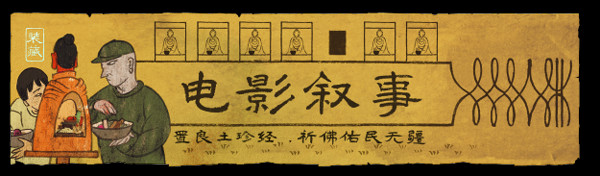 装藏
电影叙事
置良土珍经，祈佛佑民无疆